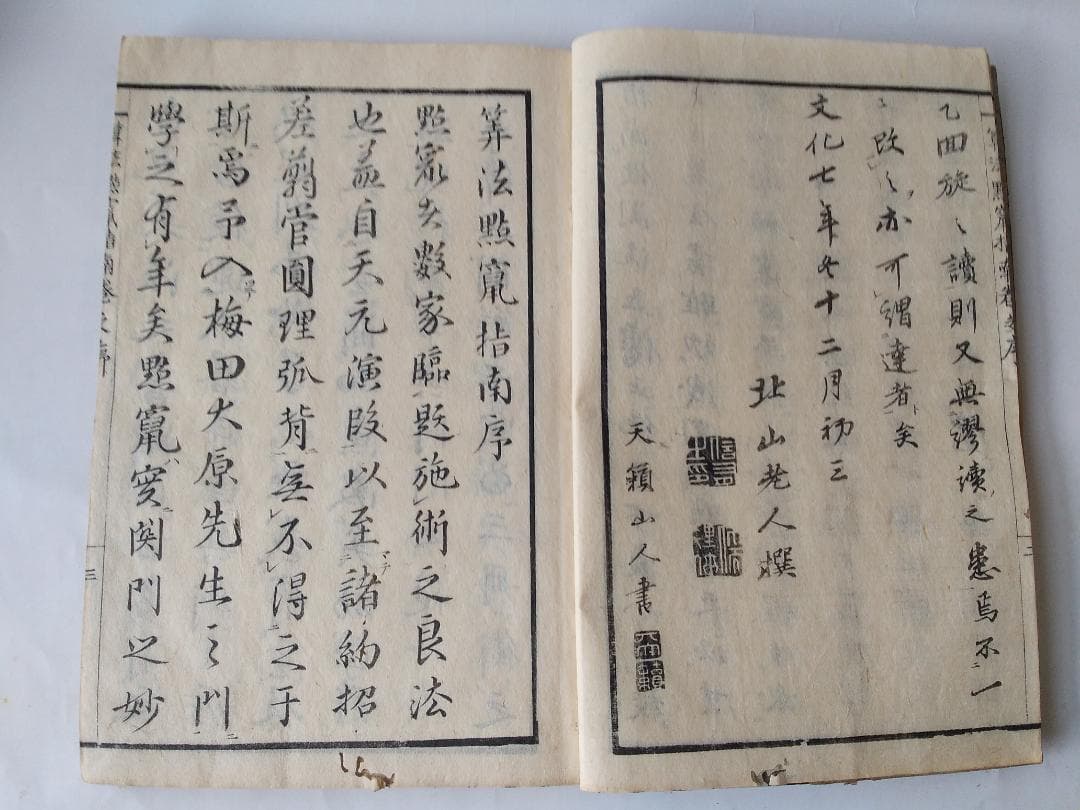 乙回旋々讀則又無謬讀之患焉不一
々改之亦可謂達者矣
文化七年冬十二月初三
北山老人撰
天籟山人書
天籟
算法點竄指南序
點竄者數家臨題施術之良法
也蓋自天元演段以至諸約招
差翦管圓理弧背無不得之于
斯焉予入梅田大原先生之門
學之有年矣點竄實関門之妙
三